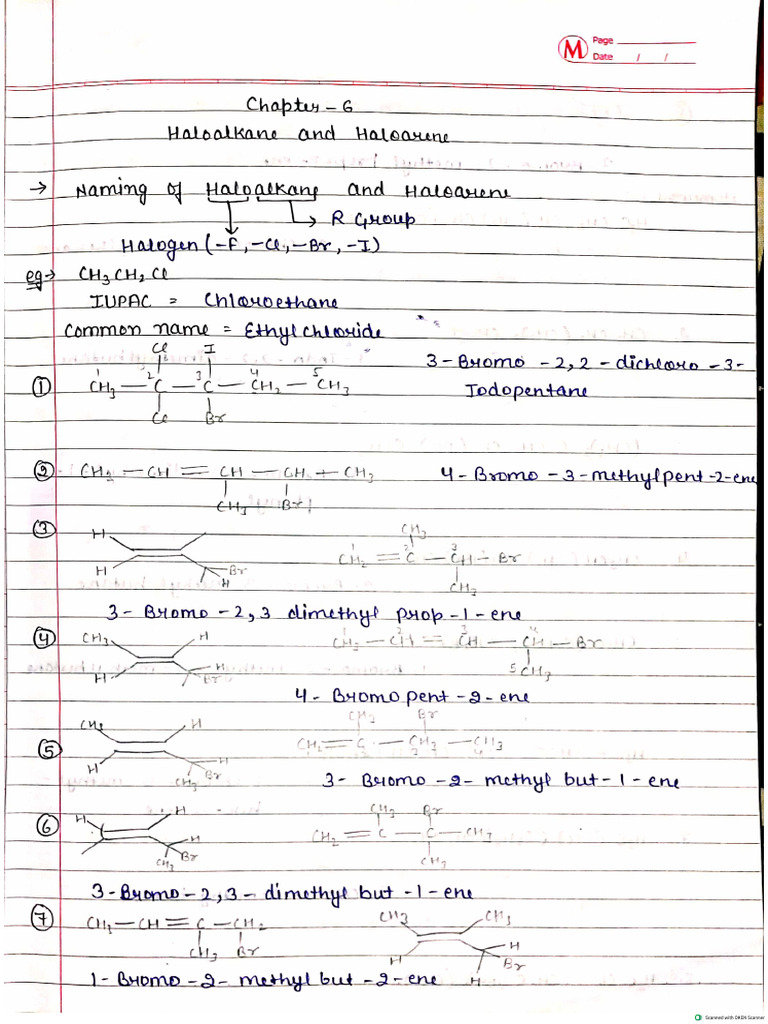 M Page
Date / /
Chapter - 6
Haloalkane and Haloarene
→ Naming of Haloalkane and Haloarene
↳ R Group
Halogen (-F, -Cl, -Br, -I)
eg→ CH3CH2Cl
IUPAC = Chloroethane
Common name = Ethyl chloride
Cl I
① CH3 — 2C — 3C — 4CH2 — 5CH3
Cl Br
3-Bromo - 2,2 - dichloro - 3-
Iodopentane
② CH3 — CH = CH — CH — CH3
CH3 Br
4-Bromo - 3-methylpent-2-ene
③ H
H Br
H
CH3
1CH2 = 2C — 3CH — Br
CH3
3- Bromo - 2,3 dimethyl prop -1- ene
④ CH3 H
H H
Br
1CH3 — 2CH = 3CH — 4CH — Br
5CH3
4- Bromo pent -2- ene
⑤ CH3 H
H Br
CH3
CH3 Br
CH2 = C — CH3 — CH3
3- Bromo -2- methyl but -1- ene
⑥ H H
H
CH3 Br
CH3 Br
CH2 = C — C — CH3
CH3
3-Bromo-2,3- dimethyl but -1-ene
⑦ CH3 — CH = C — CH2
CH3 Br
CH3 CH3
H H
Br
H
1-Bromo-2- methyl but -2-ene
Scanned with OKEN Scanner